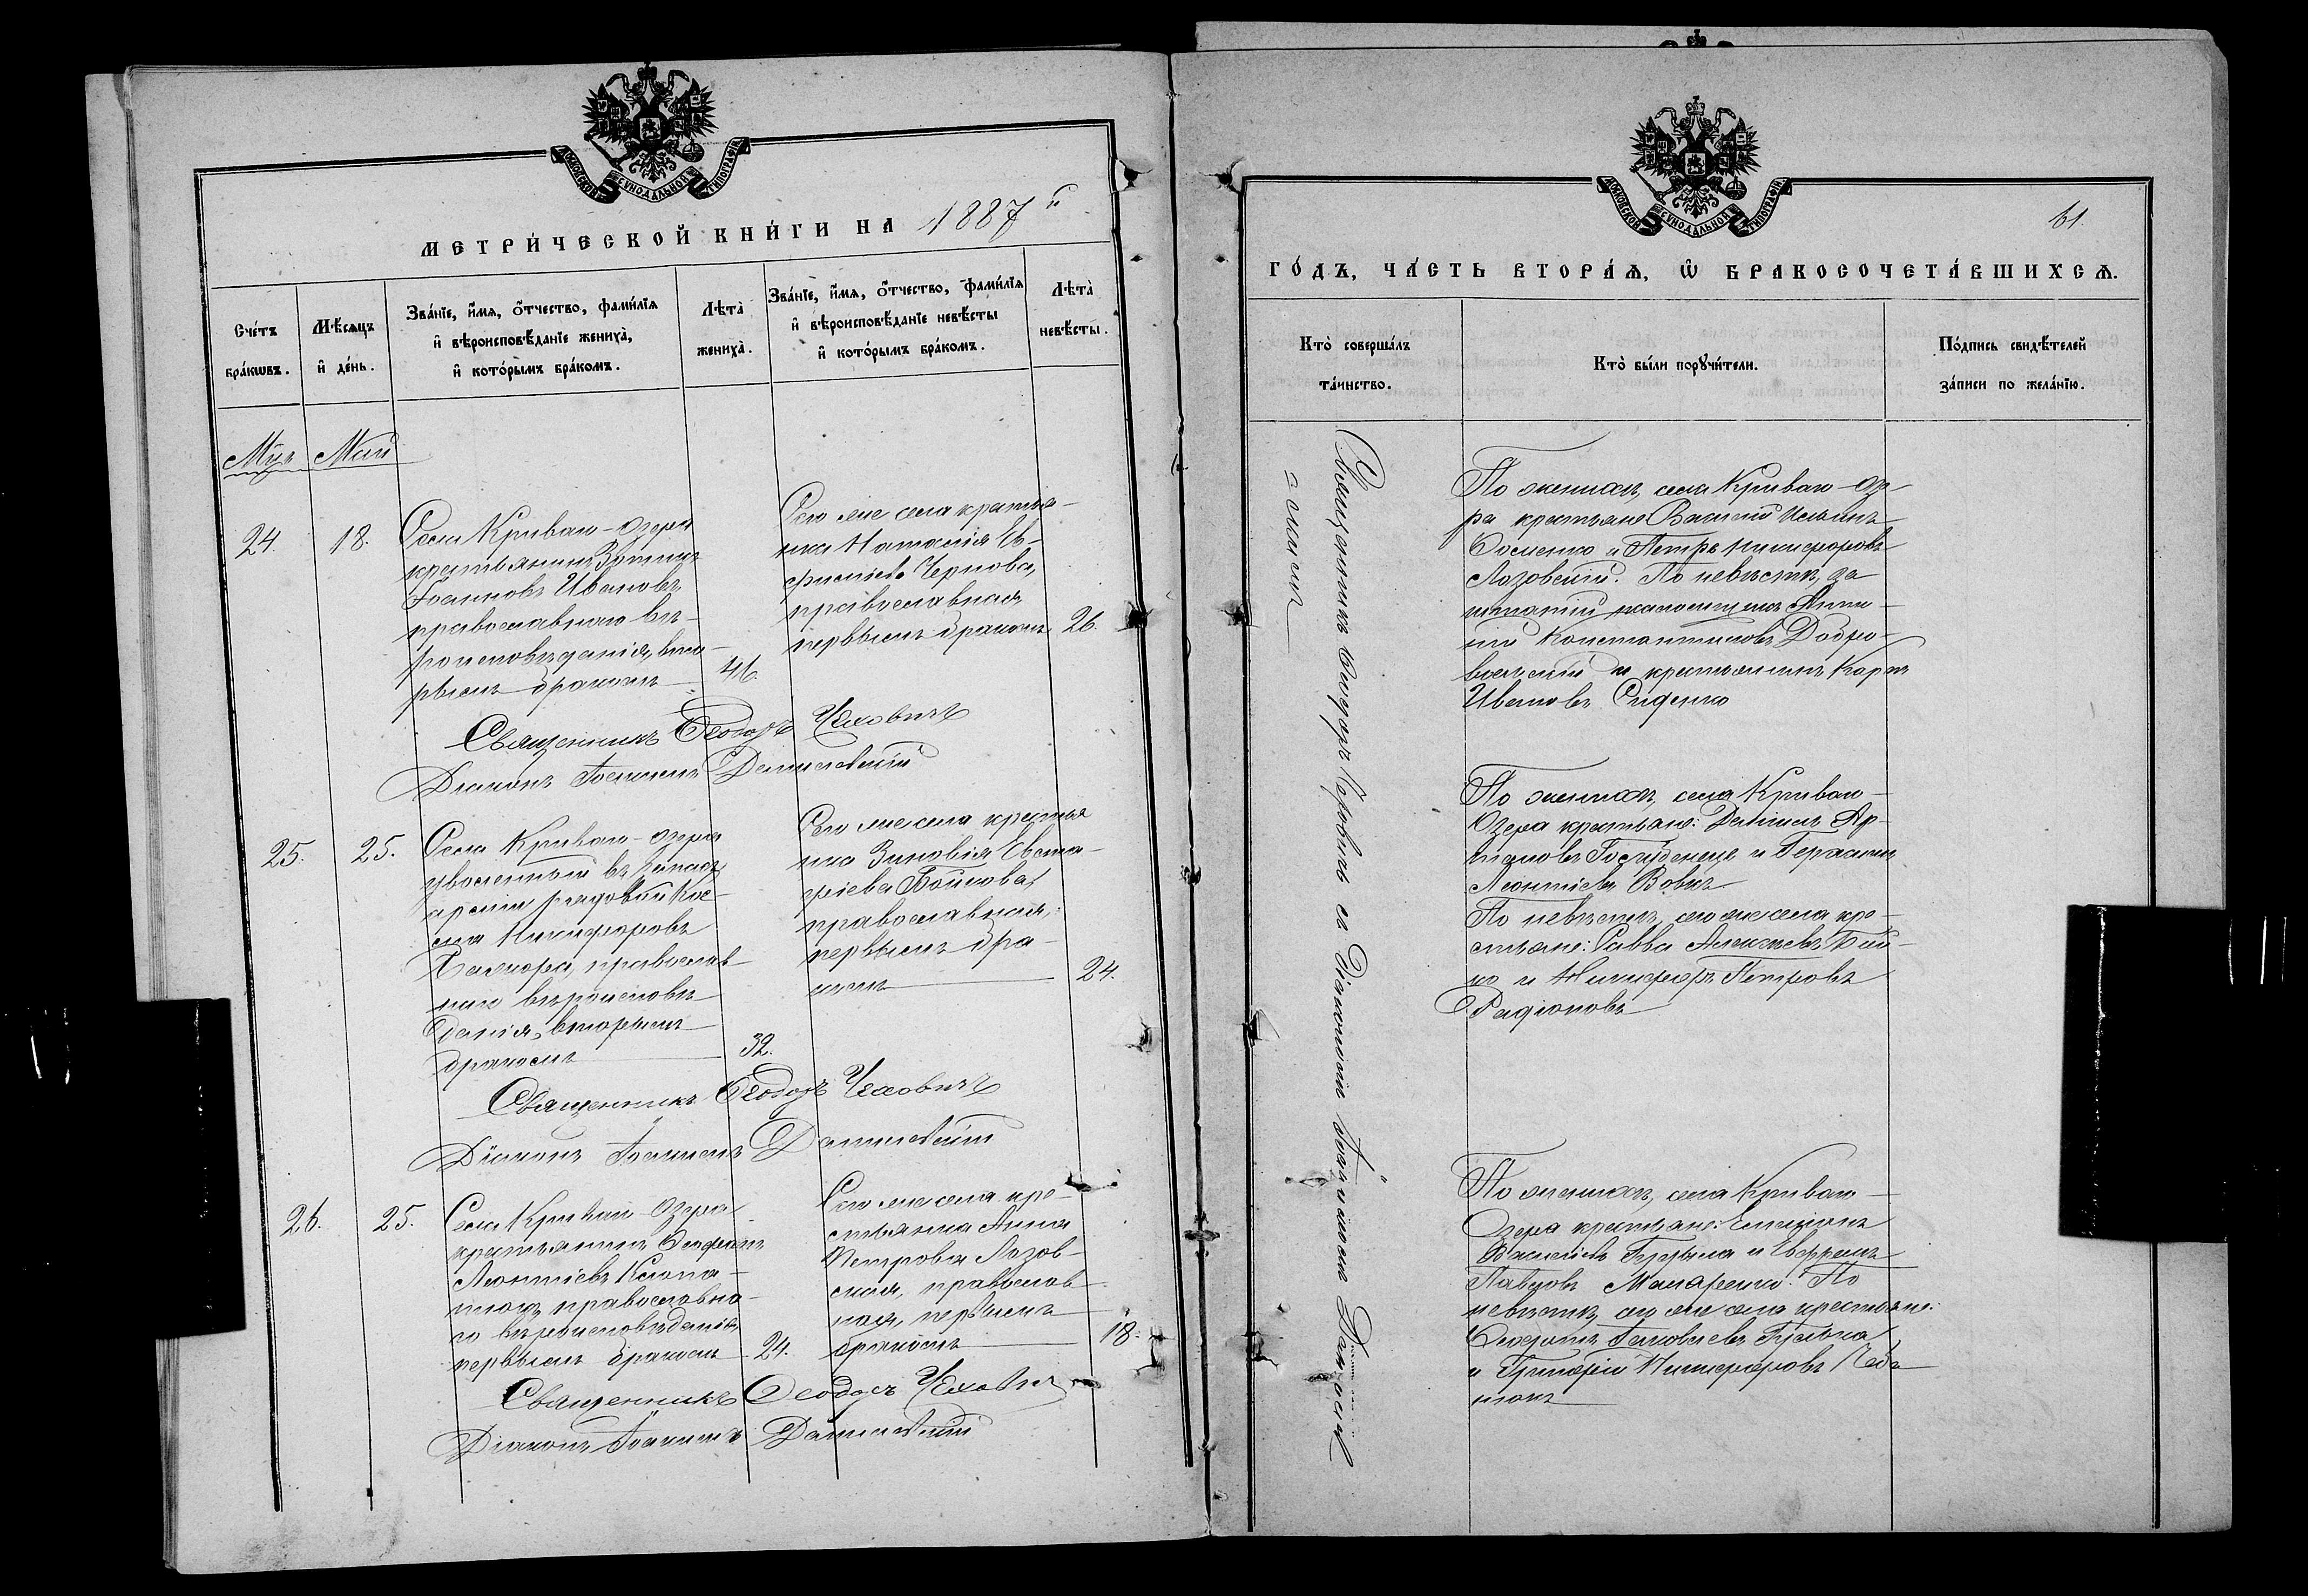 МОСКОВСКОЙ СѴНОДАЛЬНОЙ ТИПОГРАФІИ
МЕТРИ́ЧЕСКОЙ КНИ́ГИ НА 1887 й
Сче́тъ бра́кѡвъ.
Мѣ́сѧцъ и҆ де́нь.
Зва́нїе, и҆́мѧ, ѻ҆́тчество, фами́лїѧ
и҆ вѣроисповѣ́данїе жениха̀,
и҆ кото́рымъ бра́комъ.
Лѣта̀ жениха̀.
Зва́нїе, и҆́мѧ, ѻ҆́тчество, фами́лїѧ
и҆ вѣроисповѣ́данїе невѣ́сты
и҆ кото́рымъ бра́комъ.
Лѣта̀ невѣ́сты.
Май
24.
18.
Села Криваго-Озера
крестьянинъ
Іоанновъ Ивановъ
православнаго вѣ-
роисповѣданія, вто-
рымъ бракомъ
46.
Того же села крестья-
нка Наталія Ев-
Чернова,
православная
первымъ бракомъ
26.
Священникъ Ѳеодоръ Чеховичъ
Діаконъ Іоакимъ Данилевскій
25.
25.
Села Криваго-Озера
уволенный въ запасъ
арміи рядовой Кос-
ма Никифоровъ
православ-
наго вѣроисповѣ-
данія, вторымъ
бракомъ
32.
Того же села крестья
нка Зиновія Евста-
фіева Бойкова,
православная,
первымъ бра-
комъ
24.
Священникъ Ѳеодоръ Чеховичъ
Діаконъ Іоакимъ Данилевскій
26.
25.
Села Криваго-Озера
крестьянинъ
Леонтіевъ
православна-
го вѣроисповѣданія,
первымъ бракомъ
24.
Того же села кре-
стьянка Анна
Петрова Лозов-
ская, православ-
ная, первымъ
бракомъ
18.
Священникъ Ѳеодоръ Чеховичъ
Діаконъ Іоакимъ Данилевскій
МОСКОВСКОЙ СѴНОДАЛЬНОЙ ТИПОГРАФІИ
61.
ГО́ДЪ, ЧА́СТЬ ВТОРА́Ѧ, Ѡ҆ БРАКОСОЧЕТА́ВШИХСѦ.
Кто̀ соверша́лъ
та́инство.
Кто̀ бы́ли порꙋчи́тели.
По́дпись свидѣ́телей
за́писи по жела́нїю.
Священникъ Ѳеодоръ Чеховичъ съ Діакономъ Іоакимомъ Данилев-
=скимъ
По женихѣ, села Криваго-Озе-
ра крестьяне Василій
и Петръ Никифоровъ
Лозовскій. По невѣстѣ, за
штатный
Константиновъ Добро-
вольскій и крестьянинъ Карпъ
Ивановъ Сиденко
По женихѣ, села Криваго-
Озера крестьяне: Даніилъ Ар-
и Герасимъ
Леонтіевъ Вовкъ
По невѣстѣ, того же села кре-
стьяне: Савва Алексѣевъ Бой-
ко и Никифоръ Петровъ
Радіоновъ
По женихѣ, села Криваго-
Озера крестьяне:
Василіевъ и Ефремъ
Павловъ Макаренко. По
невѣстѣ, того же села крестьяне:
Яковлевъ
и Григорій Никифоровъ